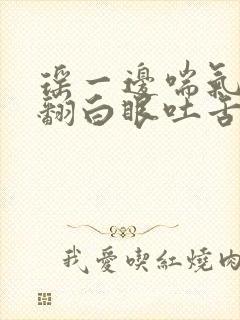 瑶一邊喘氣
翻白眼吐舌
我愛喫紅燒肉